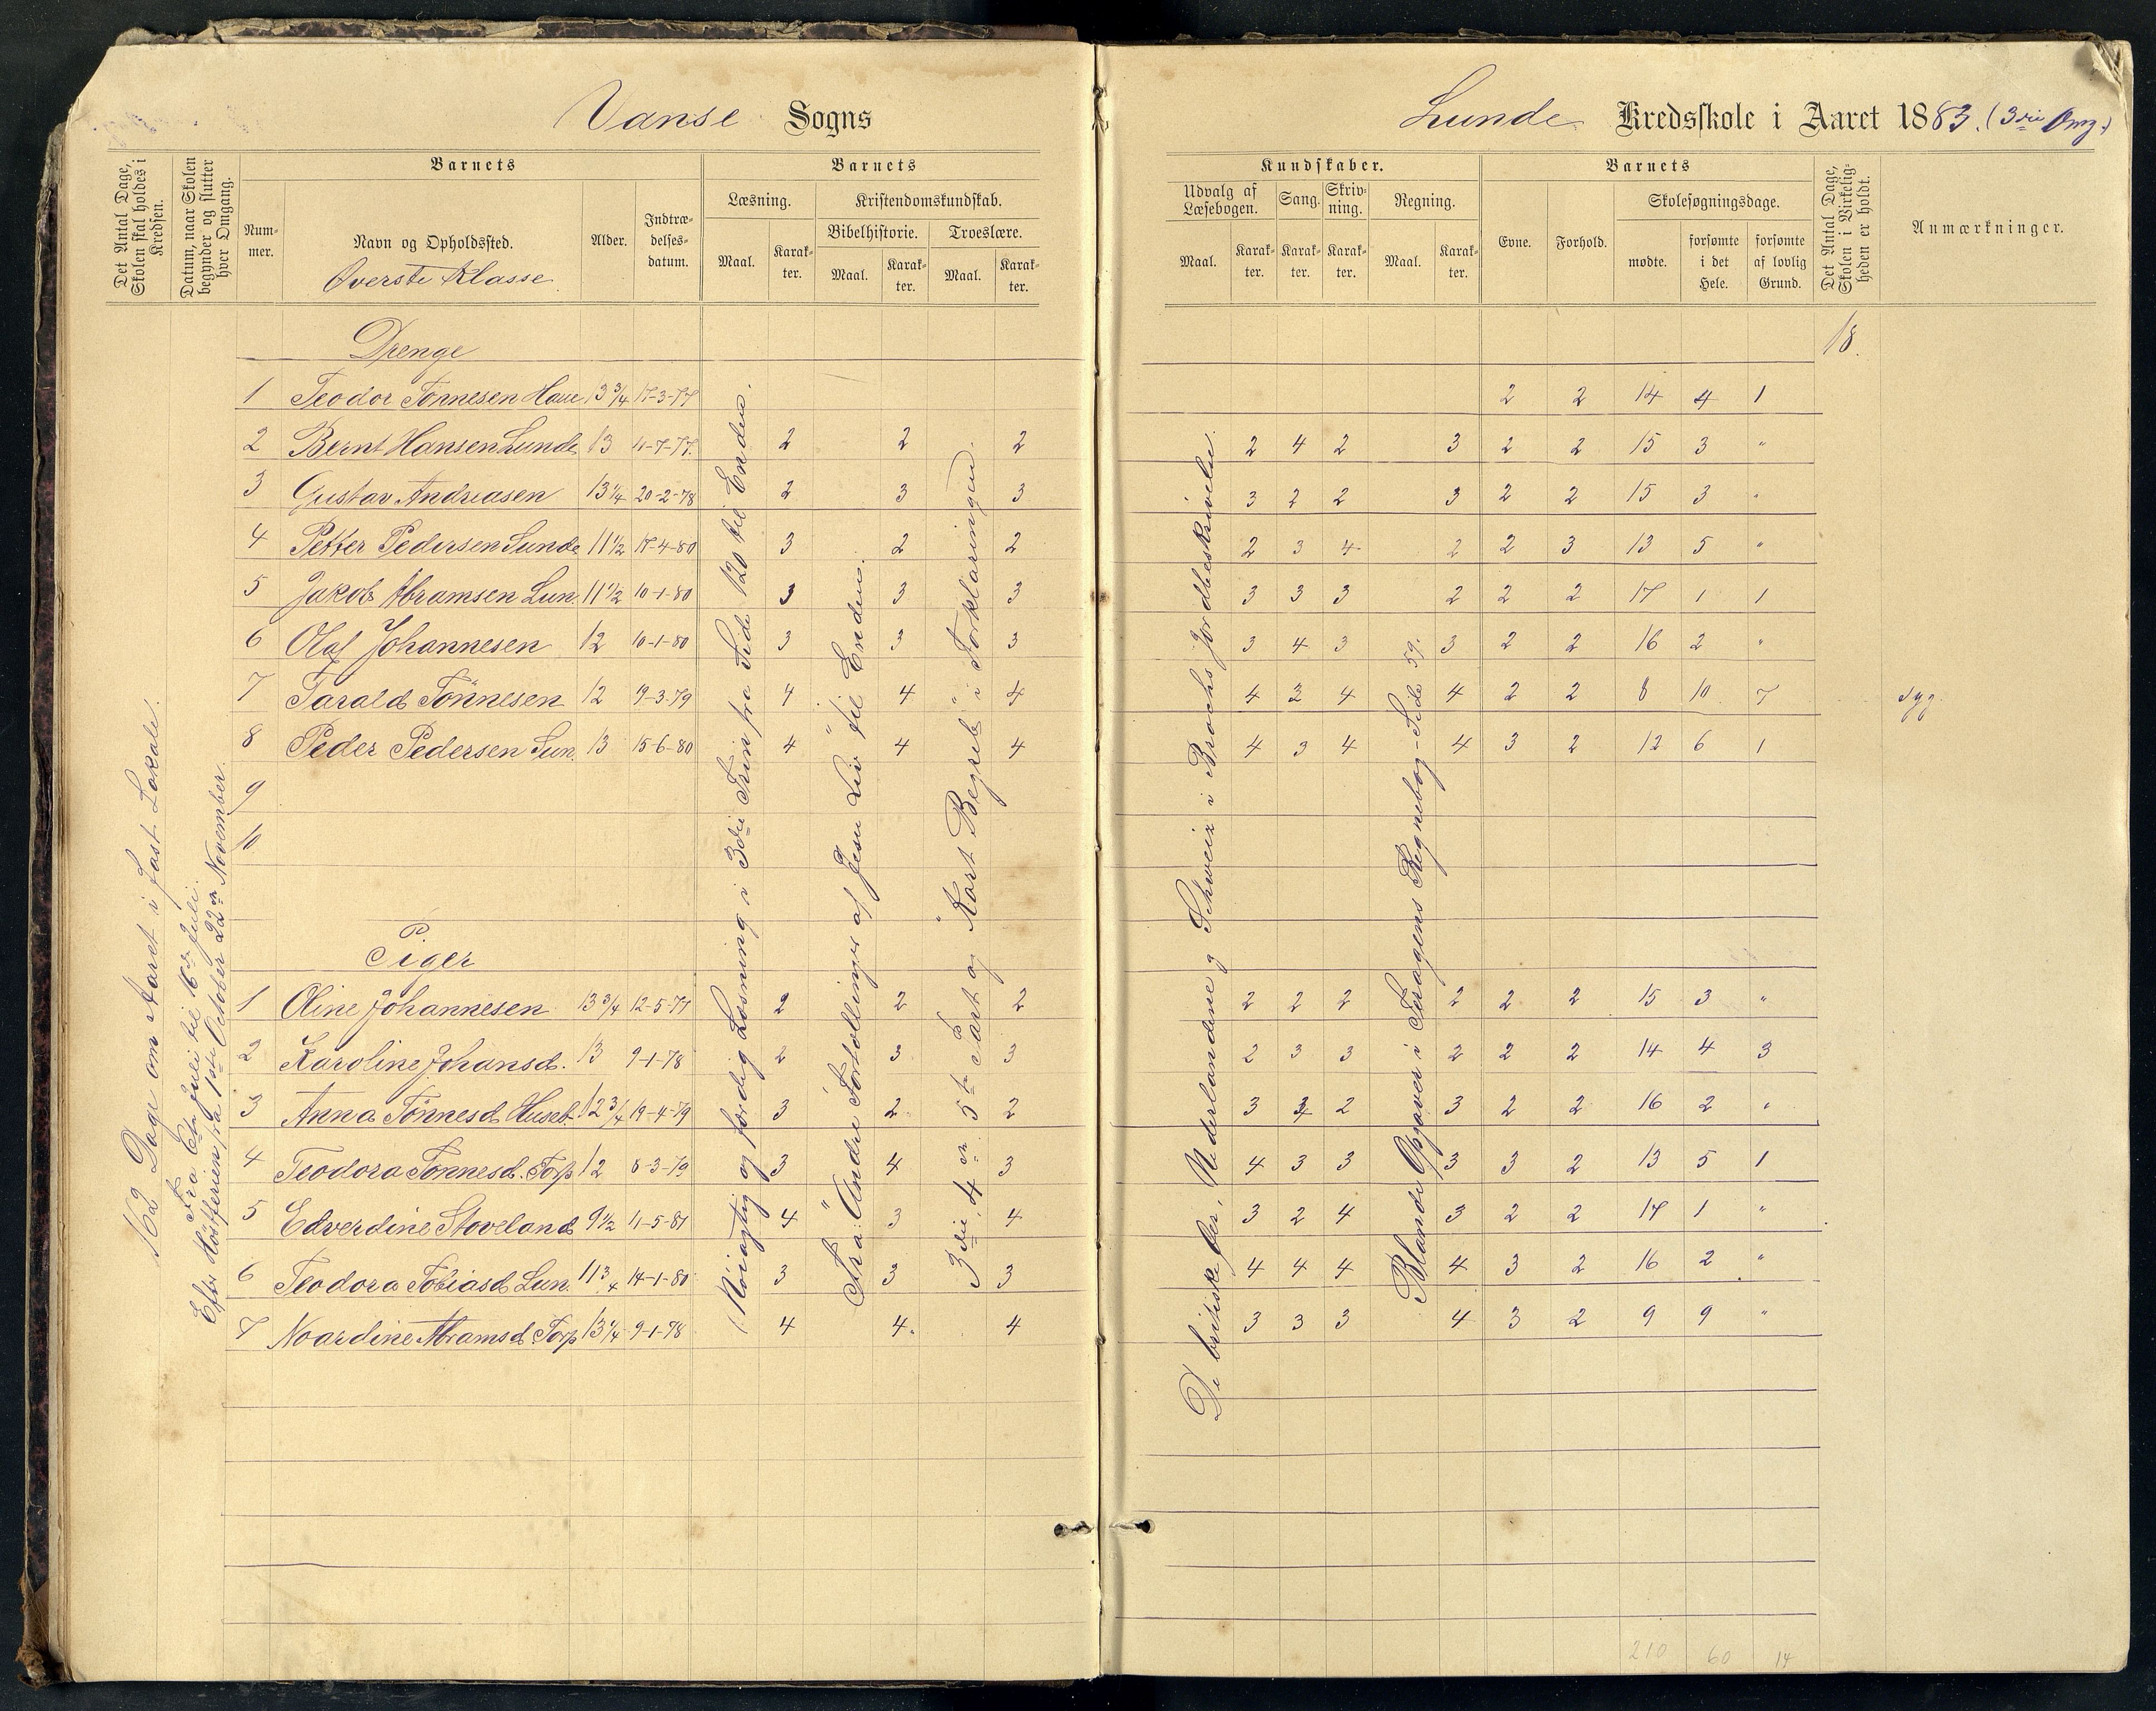 Vanse Sogns
Lunde Kredsskole i Aaret 1883. (3die Omg.)
Det Antal Dage, Skolen skal holdes i Kredsen.
Datum, naar Skolen begynder og slutter hver Omgang.
Barnets
Nummer.
Navn og Opholdssted.
Øverste Klasse
Alder.
Indtrædelsesdatum.
Barnets
Læsning.
Maal.
Karakter.
Kristendomskundskab.
Bibelhistorie.
Maal.
Karakter.
Troeslære.
Maal.
Karakter.
Kundskaber.
Udvalg af Læsebogen.
Maal.
Karakter.
Sang.
Karakter.
Skrivning.
Karakter.
Regning.
Maal.
Karakter.
Barnets
Evne.
Forhold.
Skolesøgningsdage.
mødte.
forsømte i det Hele.
forsømte af lovlig Grund.
Det Antal Dage, Skolen i Virkeligheden er holdt.
Anmærkninger.
162 Dage om Aaret i fast Lokale.
Fra juli til 16de juli.
Efter Høstferien fra 1ste October 22de November.
Nöiagtig og færdig Læsning i 3die Trin fra Side 120 til Enden.
Fra: "Andre Fortællinger af Jesu Liv" til Enden.
3die, 4de en 5te Part og "Kort Begreb" i Forklaringen.
De britiske Øer, Nederlandene og Schweiz i Brochs Jordbeskrivelse.
Blandede Opgaver i Regnebog - Side 59.
18.
Drenge
1 Teodor Tönnesen Haue 13 3/4 17-3-77 2 2 14 4 1
2 Bernt Hansen Lunde 13 11-7-77. 2 2 2 2 4 2 3 2 2 15 3 "
3 Gustav Andreasen 13 1/4 20-2-78 2 3 3 3 2 2 3 2 2 15 3 "
4 Petter Pedersen Lunde 11 1/2 17-4-80 3 2 2 2 3 4 2 2 3 13 5 "
5 Jakob Abramsen Lun. 11 1/2 10-1-80 3 3 3 3 3 3 2 2 2 17 1 1
6 Olaf Johannesen 12 10-1-80 3 3 3 3 4 3 3 2 2 16 2 "
7 Tarald Tönnesen 12 19-3-79 4 4 4 4 3 4 4 2 2 8 10 7 syg.
8 Peder Pedersen Lun. 13 15-6-80 4 4 4 4 3 4 4 3 2 12 6 1
9
10
Piger
1 Oline Johannesen 13 3/4 12-5-77 2 2 2 2 2 2 2 2 2 15 3 "
2 Karoline Johansd. 13 9-1-78 2 3 3 2 3 3 2 2 2 14 4 3
3 Anna Tönnesd. Huseb. 12 3/4 19-4-79 3 2 2 3 3 2 3 2 2 16 2 "
4 Teodora Tönnesd. Torp 12 8-3-79 3 4 3 4 3 3 3 3 2 13 5 1
5 Edverdine Stoveland 9 1/2 11-5-81 4 3 4 3 2 4 3 2 2 17 1 "
6 Teodora Tobiasd. Lun. 11 3/4 14-1-80 3 3 3 4 4 4 4 3 2 16 2 "
7 Noardine Abramsd. Torp 13 1/4 9-1-78 4 4. 4 3 3 3 4 3 2 9 9 "
210 60 14